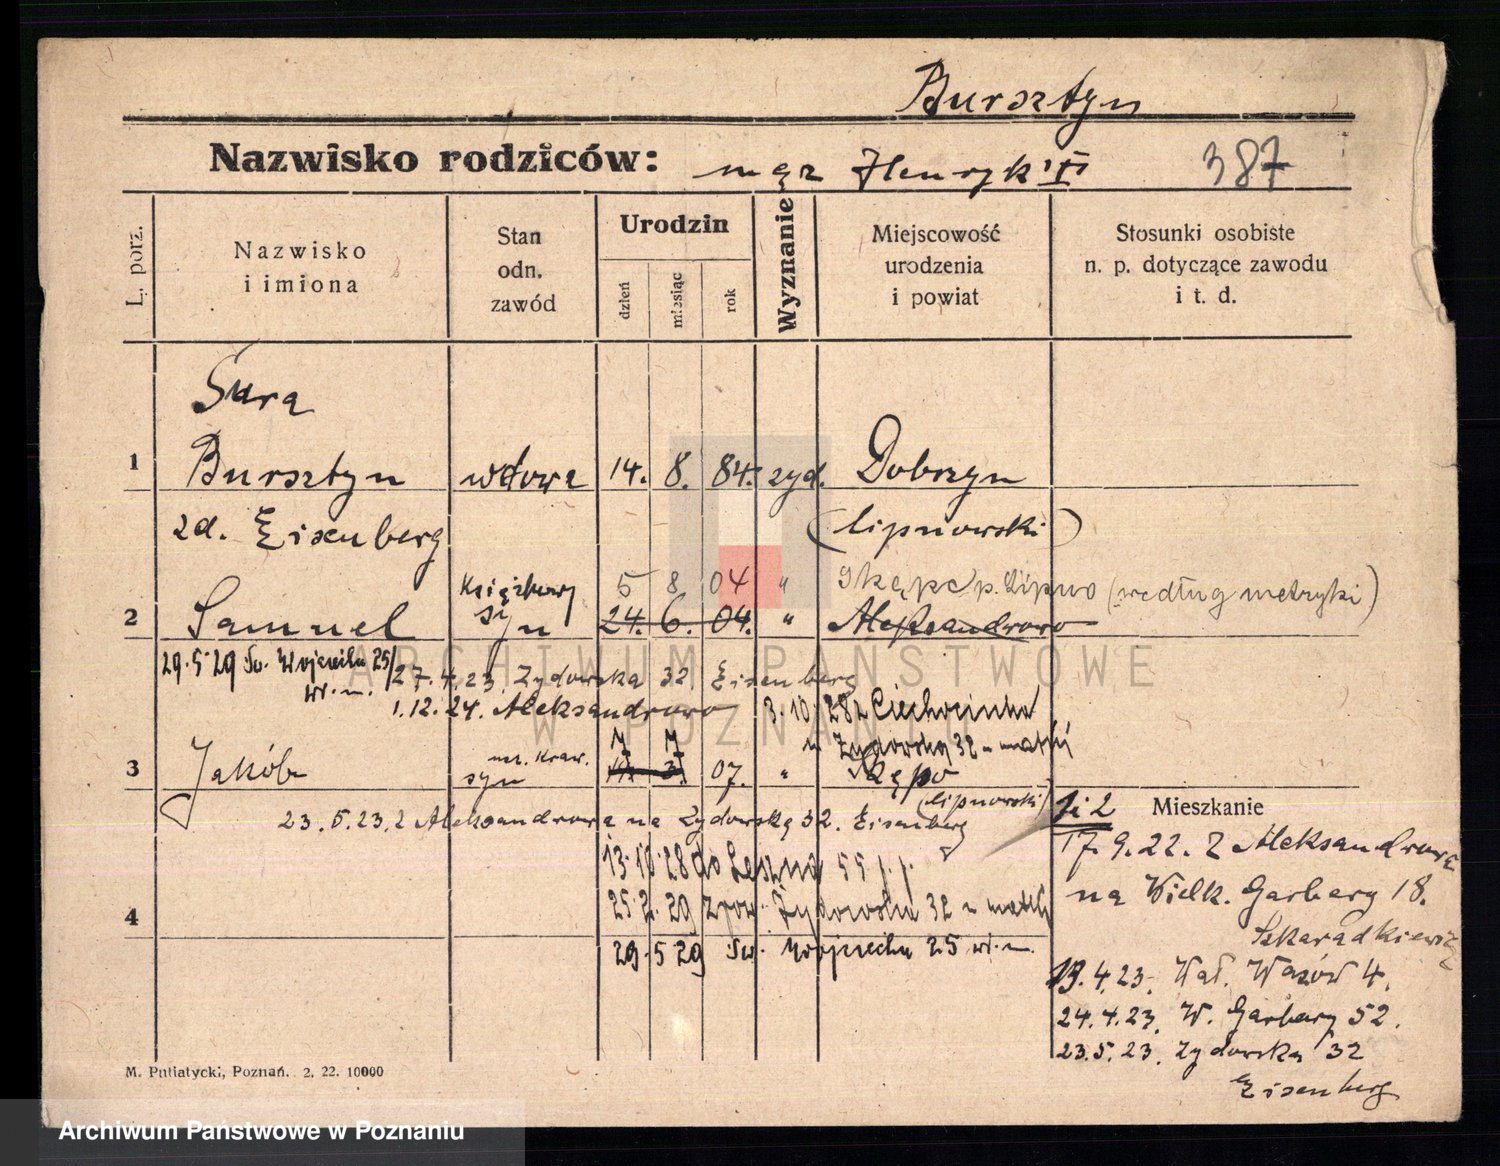 Bursztyn
Nazwisko rodziców: mąż Henryk "I" 387
L. porz.
Nazwisko
i imiona
Stan
odn.
zawód
Urodzin
dzień
miesiąc
rok
Wyznanie
Miejscowość
urodzenia
i powiat
Stosunki osobiste
n. p. dotyczące zawodu
i t. d.
Sura
1 Bursztyn wdowa 14. 8. 84. żyd. Dobrzyn
zd. Eisenberg (lipnowski)
Książkowy 5 8 04 " Skępe p. Lipno (według metryki)
2 Samuel syn 24. 6. 04. " Aleksandrowo
29.5.29 Św. Wojciecha 25/
27.4.23. Żydowska 32 Eisenberg
1.12.24. Aleksandrowo 3.10.28 z Ciechocinka
Żydowska 32 u matki
3 Jakób syn 07. " Skępo
(lipnowski)
23.5.23. z Aleksandrowa na Żydowską 32. Eisenberg
13.10.28 do Leszna 55
25.2.29 Żydowska 32 u matki
4
29.5.29 Św. Wojciecha 25
1 i 2 Mieszkanie
17.9.22. z Aleksandrowa
na Wielk. Garbary 18.
Szkaradkiewicz
19.4.23. Wał. Wazów 4.
24.4.23. W. Garbary 52.
23.5.23. Żydowska 32
Eisenberg
M. Putiatycki, Poznań. 2. 22. 10000
ARCHIWUM PAŃSTWOWE
W POZNANIU
Archiwum Państwowe w Poznaniu